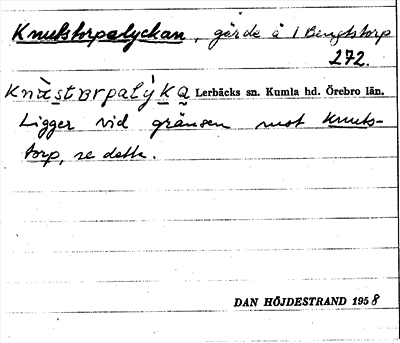 Knutstorpalyckan, gärde å 1 Bengtstorp
272.
Lerbäcks sn. Kumla hd. Örebro län.
Ligger vid gränsen mot Knuts-
torp, se detta.
DAN HÖJDESTRAND 1958